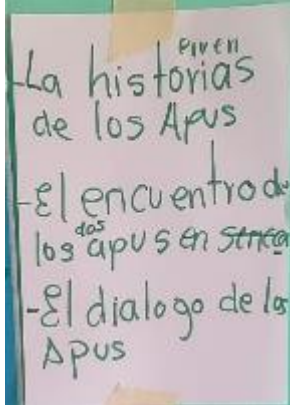 -La historias
de los Apus
-El encuentro de
los dos apus en
-El dialogo de los
Apus